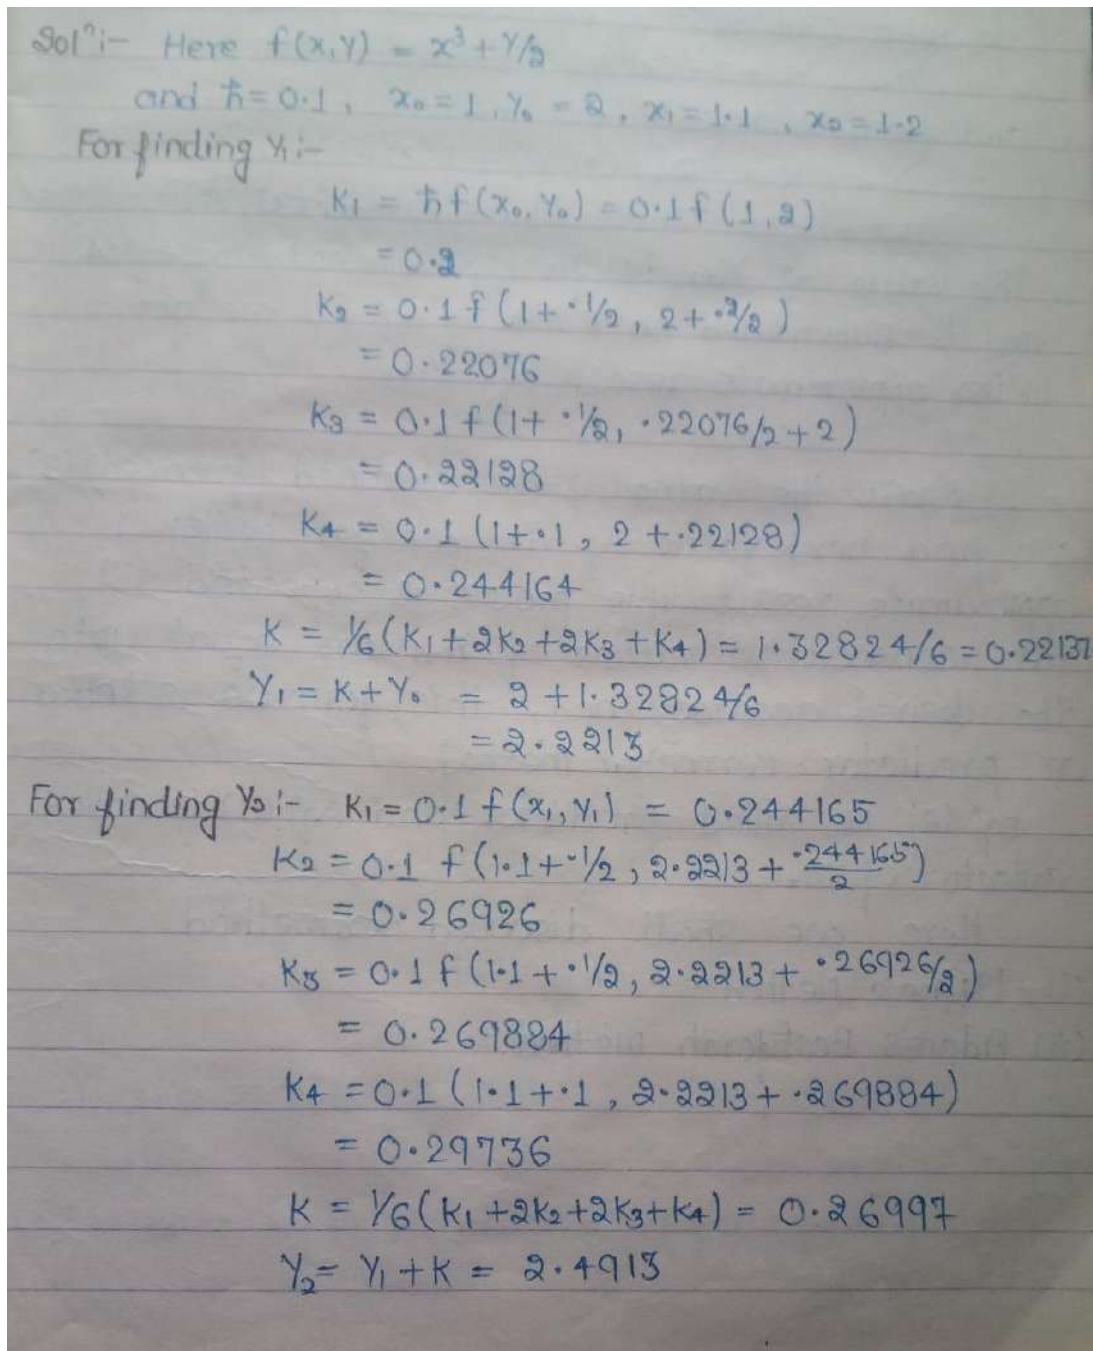 Solⁿ:- Here f(x,y) = x³ + y/2
and ħ = 0.1, x₀ = 1, y₀ = 2, x₁ = 1.1, x₂ = 1.2
For finding y₁:-
K₁ = ħf(x₀, y₀) = 0.1f(1,2)
= 0.2
K₂ = 0.1 f(1+ .1/2, 2+ .2/2)
= 0.22076
K₃ = 0.1 f(1+ .1/2, .22076/2 + 2)
= 0.22128
K₄ = 0.1 (1+.1, 2 + .22128)
= 0.244164
K = 1/6(K₁+2K₂+2K₃+K₄) = 1.32824/6 = 0.22137
Y₁ = K + Y₀ = 2 + 1.32824/6
= 2.2213
For finding Y₂:- K₁ = 0.1 f(x₁, y₁) = 0.244165
K₂ = 0.1 f(1.1+.1/2, 2.2213 + .244165/2)
= 0.26926
K₃ = 0.1 f(1.1 + .1/2, 2.2213 + .26926/2)
= 0.269884
K₄ = 0.1 (1.1+.1, 2.2213 + .269884)
= 0.29736
K = 1/6(K₁+2K₂+2K₃+K₄) = 0.26997
Y₂ = Y₁ + K = 2.4913